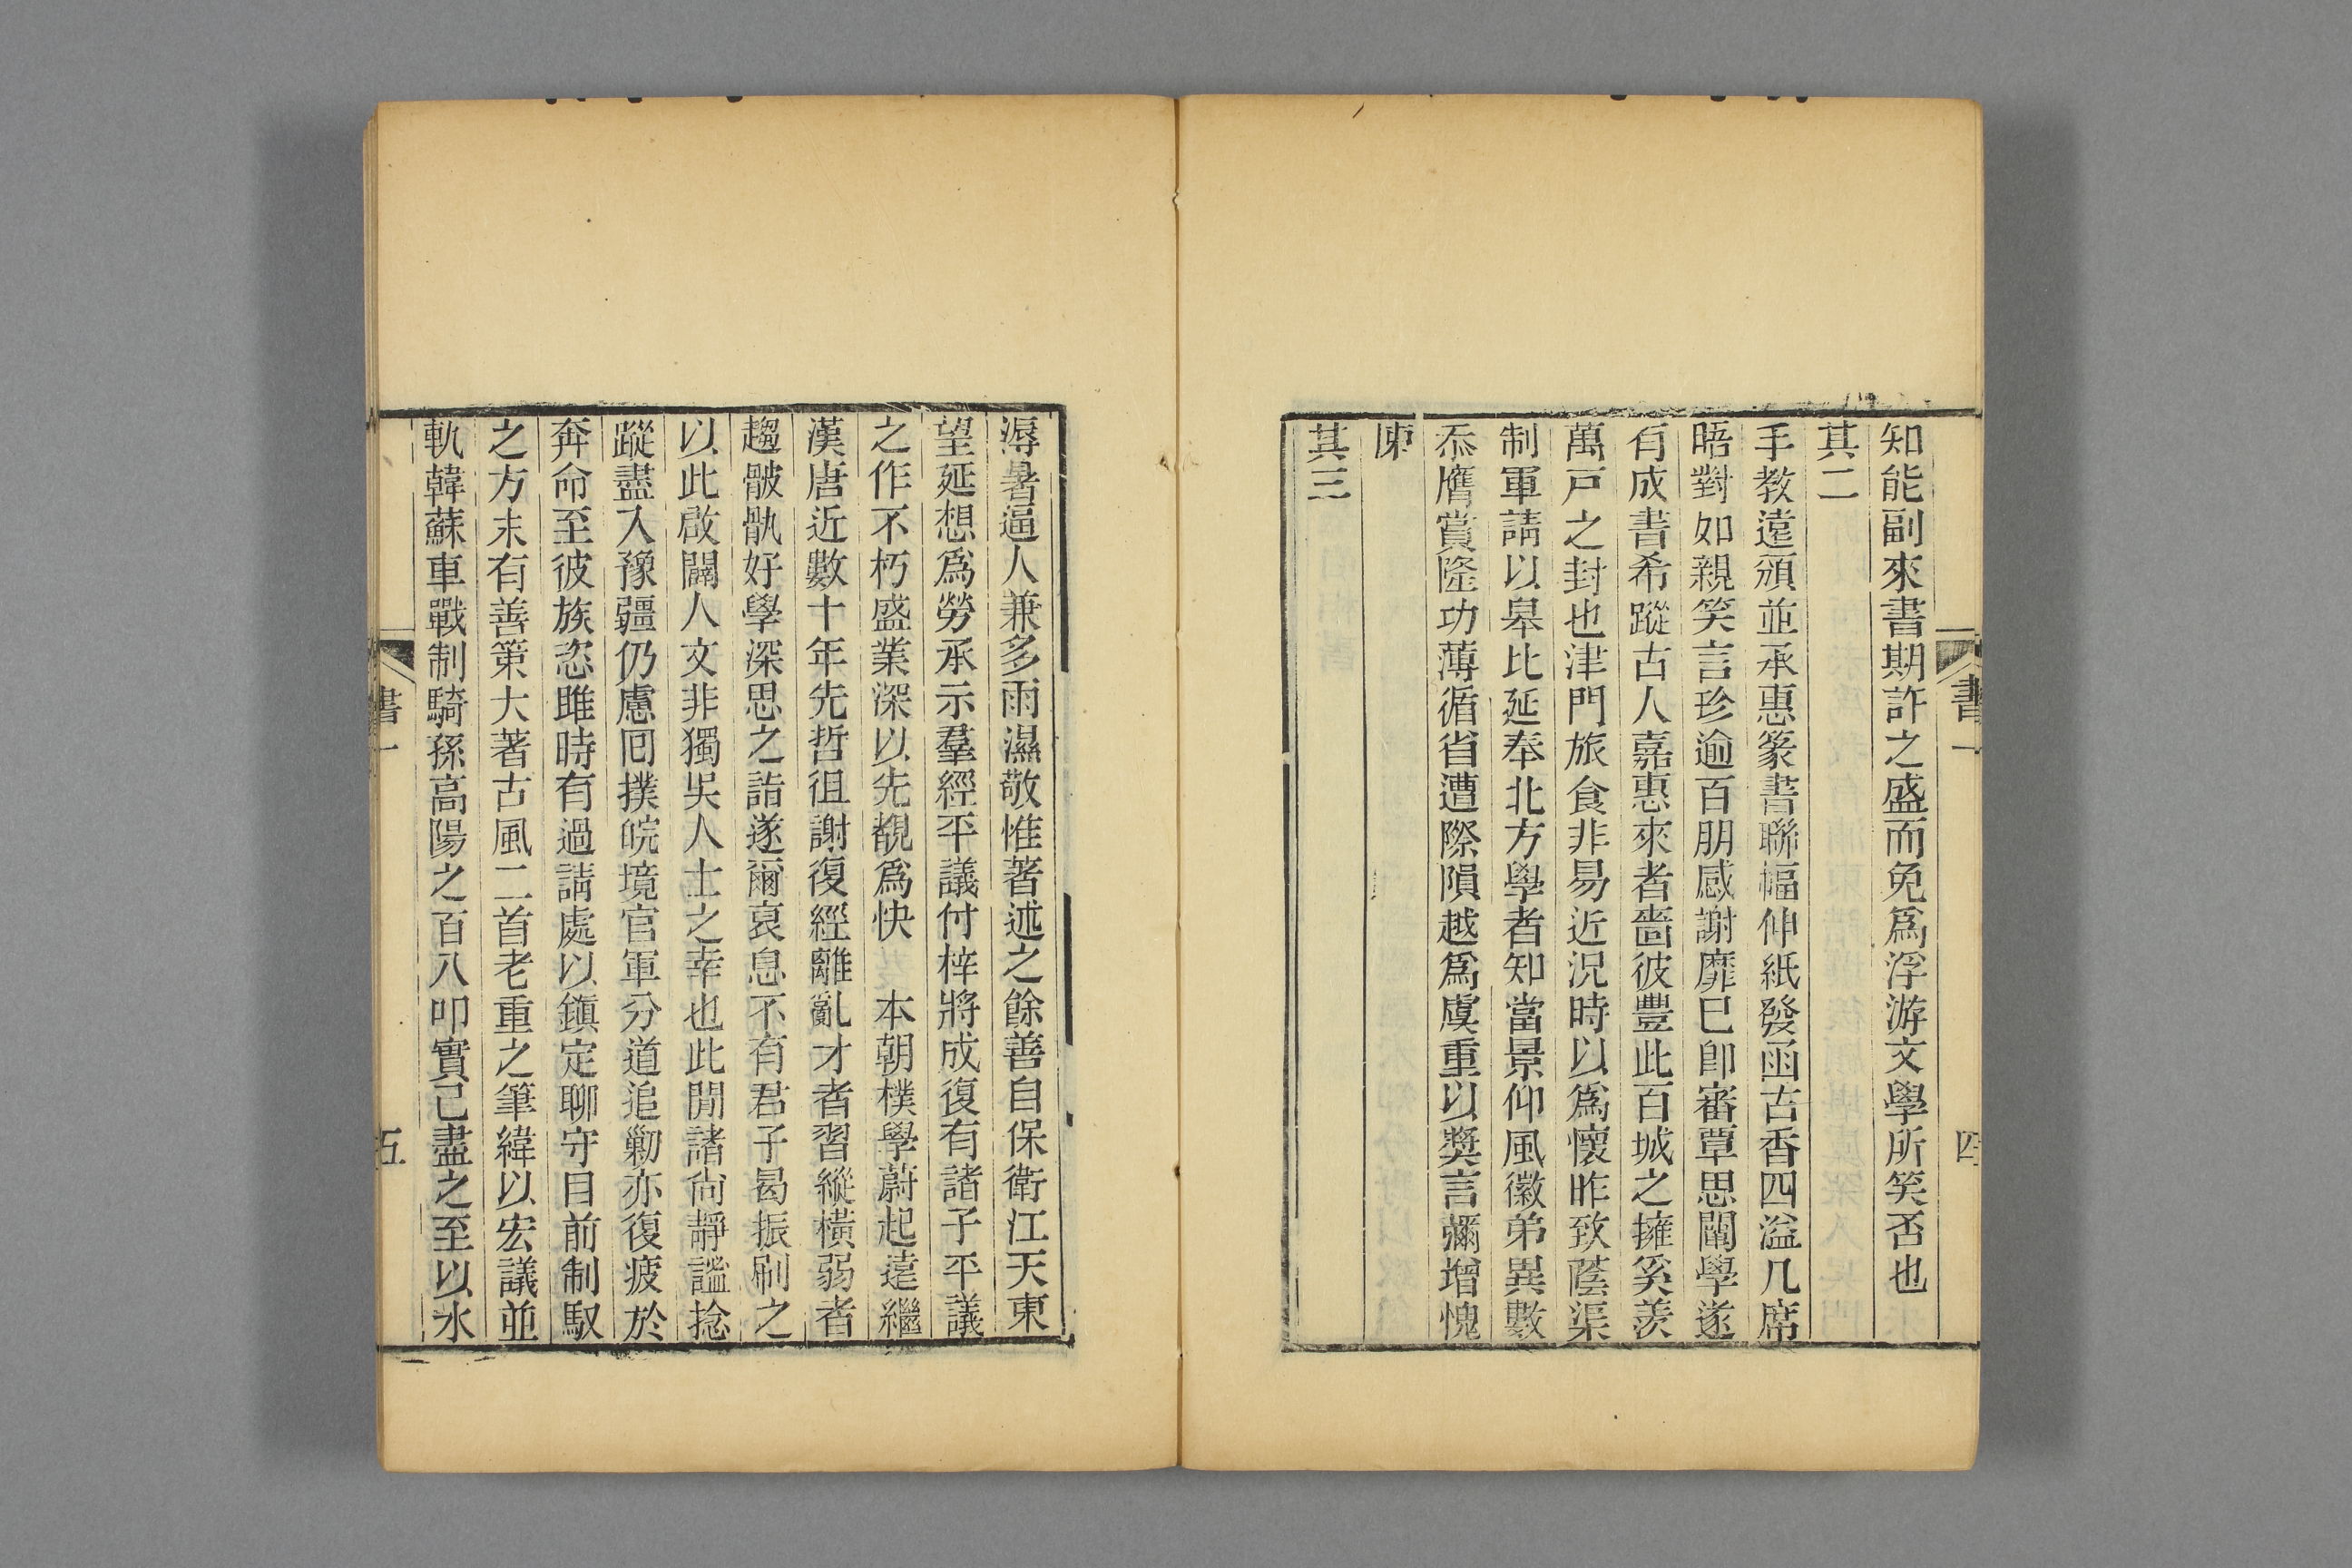 書一
四
知能副來書期許之盛而免爲浮游文學所笑否也
其二
手教遠頒並承惠篆書聯幅伸紙發函古香四溢几席
晤對如親笑言珍逾百朋感謝靡已卽審覃思闡學遂
有成書希蹤古人嘉惠來者嗇彼豐此百城之擁奚羨
萬戸之封也津門旅食非易近況時以爲懷昨致蔭渠
制軍請以皋比延奉北方學者知當景仰風徽弟異數
忝膺賞隆功薄循省遭際隕越爲虞重以奬言彌增愧
悚
其三
溽暑逼人兼多雨濕敬惟著述之餘善自保衛江天東
望延想爲勞承示羣經平議付梓將成復有諸子平議
之作不朽盛業深以先覩爲快　本朝樸學蔚起遠繼
漢唐近數十年先哲徂謝復經離亂才者習縱橫弱者
趨骳骫好學深思之詣遂爾衰息不有君子曷振刷之
以此啟闢人文非獨吳人士之幸也此閒諸尙靜謐捻
蹤盡入豫疆仍慮囘撲皖境官軍分道追勦亦復疲於
奔命至彼族恣睢時有過請處以鎭定聊守目前制馭
之方未有善策大著古風二首老重之筆緯以宏議並
軌韓蘇車戰制騎孫高陽之百八叩實已盡之至以氷
書一
五